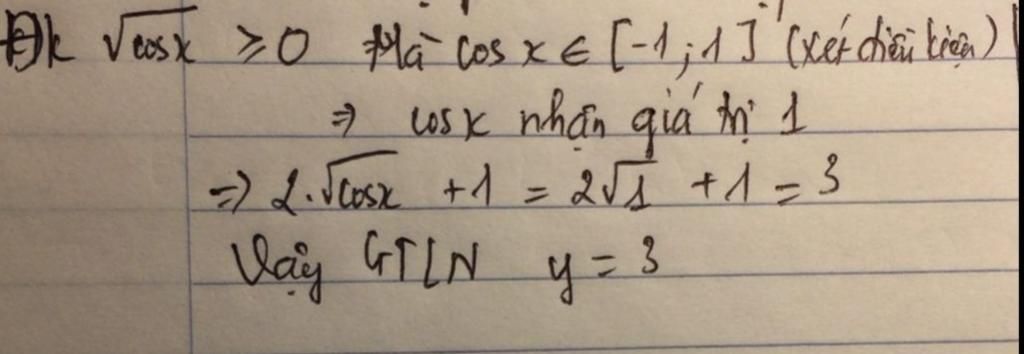 Đk √cosx ≥ 0 Mà cos x ∈ [-1; 1] (xét điều kiện)
⇒ cosx nhận giá trị 1
⇒ 2.√cosx + 1 = 2√1 + 1 = 3
Vậy GTLN y = 3